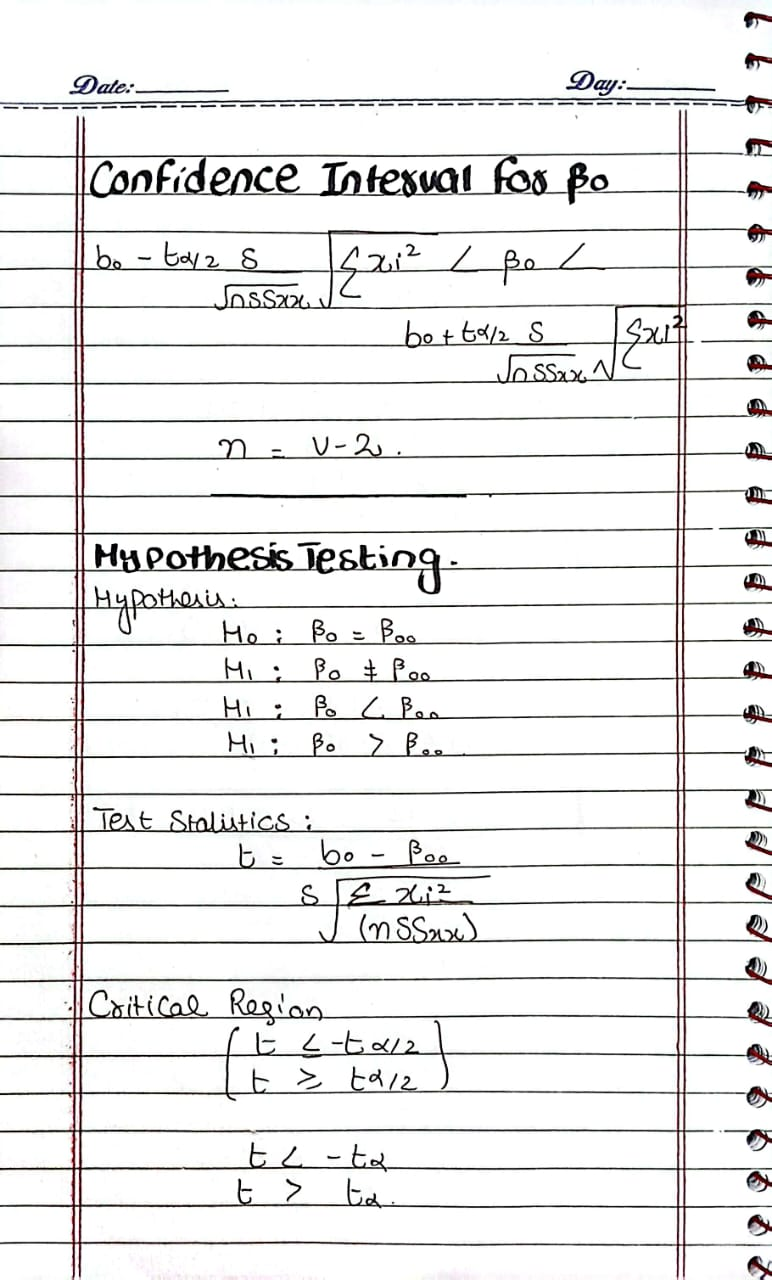 Date:
Day:
Confidence Interval for β₀
b₀ - tα/2 S/√nSSxx √Σxi² < β₀ <
b₀ + tα/2 S/√nSSxx √Σxi²
n = v-2.
Hypothesis Testing.
Hypothesis:
H₀ : β₀ = β₀₀
H₁ : β₀ ≠ β₀₀
H₁ : β₀ < β₀₀
H₁ : β₀ > β₀₀
Test Statistics :
t = b₀ - β₀₀
S √Σxi²
(nSSxx)
Critical Region
t ≤ -tα/2
t ≥ tα/2
t < -tα
t > tα.